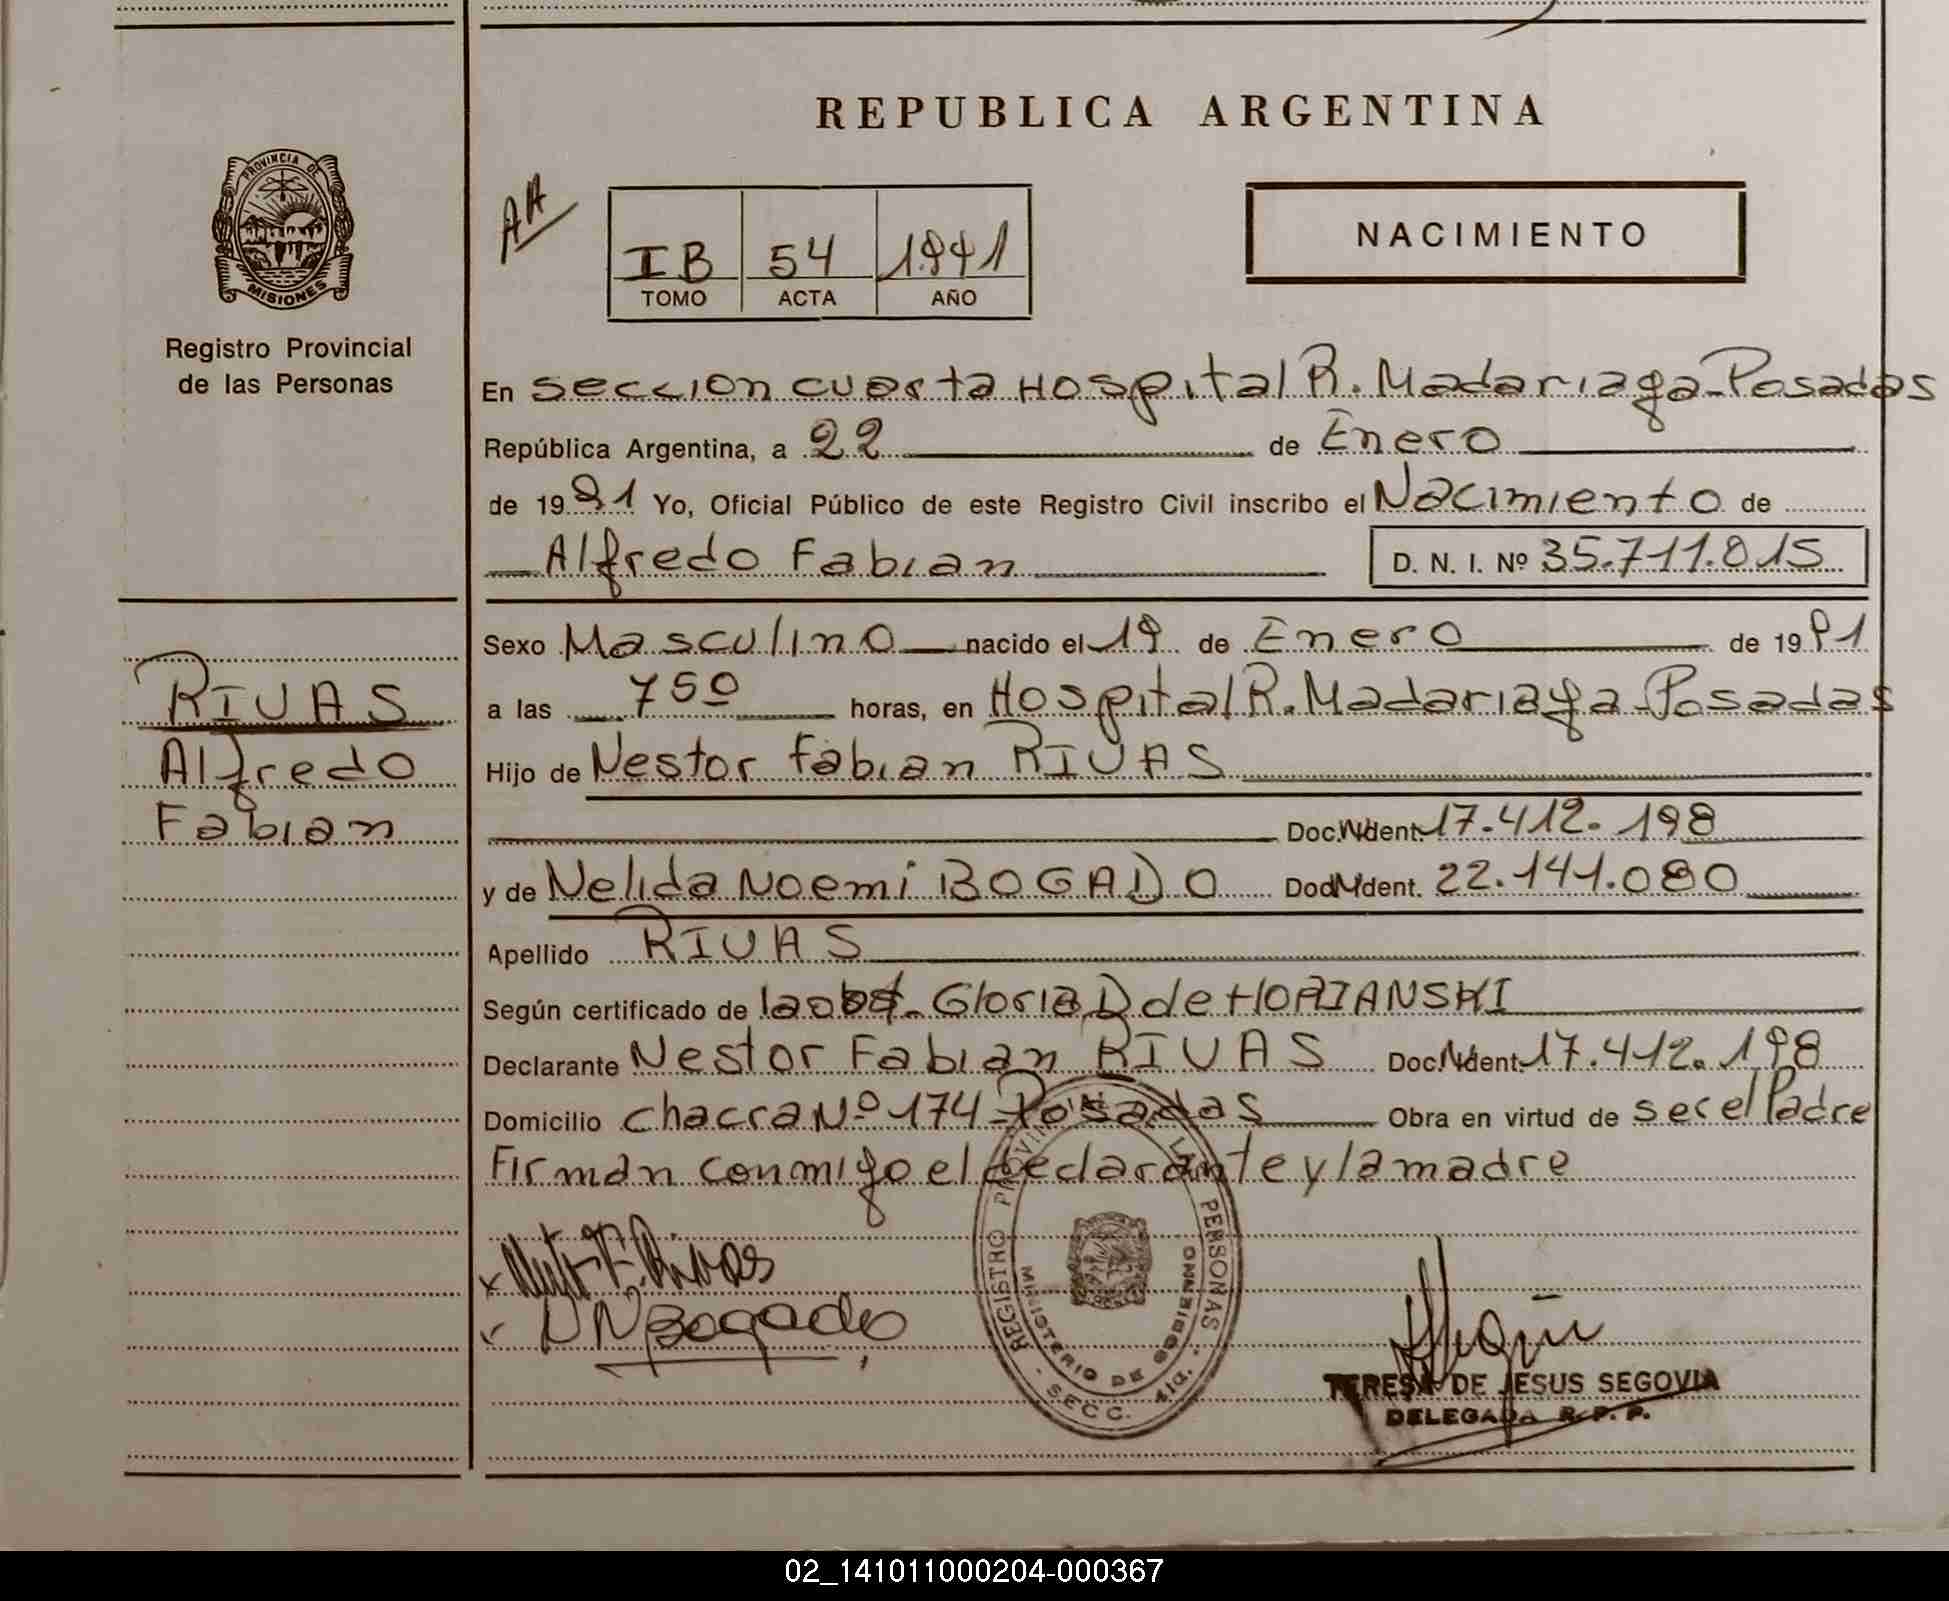 REPUBLICA ARGENTINA
PROVINCIA DE
MISIONES
Registro Provincial
de las Personas
AA
IB 54 1991
TOMO ACTA AÑO
NACIMIENTO
En seccion cuarta Hospital R. Madariaga - Posadas
República Argentina, a 22 de Enero
de 1991 Yo, Oficial Público de este Registro Civil inscribo el Nacimiento de
Alfredo Fabian D. N. I. Nº 35.711.015
Sexo Masculino nacido el 19 de Enero de 1991
a las 750 horas, en Hospital R. Madariaga - Posadas
Hijo de Nestor Fabian RIVAS
Doc. Ident. 17.412.198
y de Nelida Noemi BOGADO Doc. Ident. 22.141.080
Apellido RIVAS
Según certificado de la obst. Gloria D de
Declarante Nestor Fabian RIVAS Doc. Ident. 17.412.198
Domicilio chacra Nº 174 - Posadas Obra en virtud de ser el Padre
Firman conmigo el declarante y la madre
RIVAS
Alfredo
Fabian
F. Rivas
N N Bogado
REGISTRO PROVINCIAL DE LAS PERSONAS
MINISTERIO DE GOBIERNO
- SECC. 4ta. -
TERESA DE JESUS SEGOVIA
DELEGADA R. P. P.
02_141011000204-000367